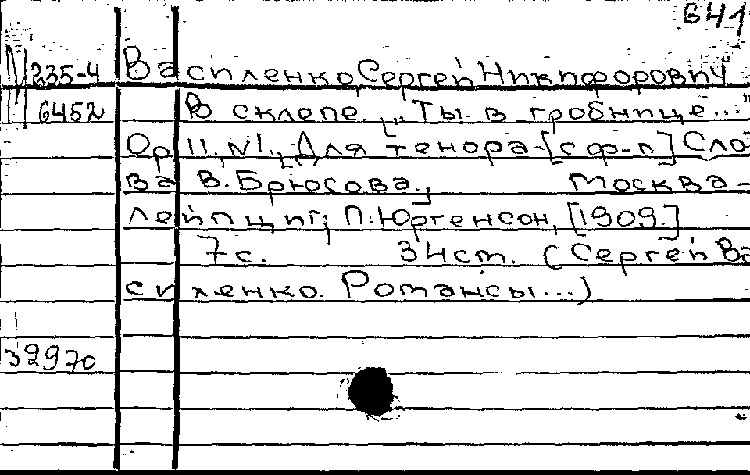 641
235-4 Василенко, Сергей Никифорович
6452 В склепе. „Ты в гробнице..."
Op. 11, N1. Для тенора [с ф-п] Сло-
ва В. Брюсова. Москва -
Лейпциг, П. Юргенсон, [1909.]
7с. 34ст. (Сергей Ва-
силенко. Романсы...)
32970